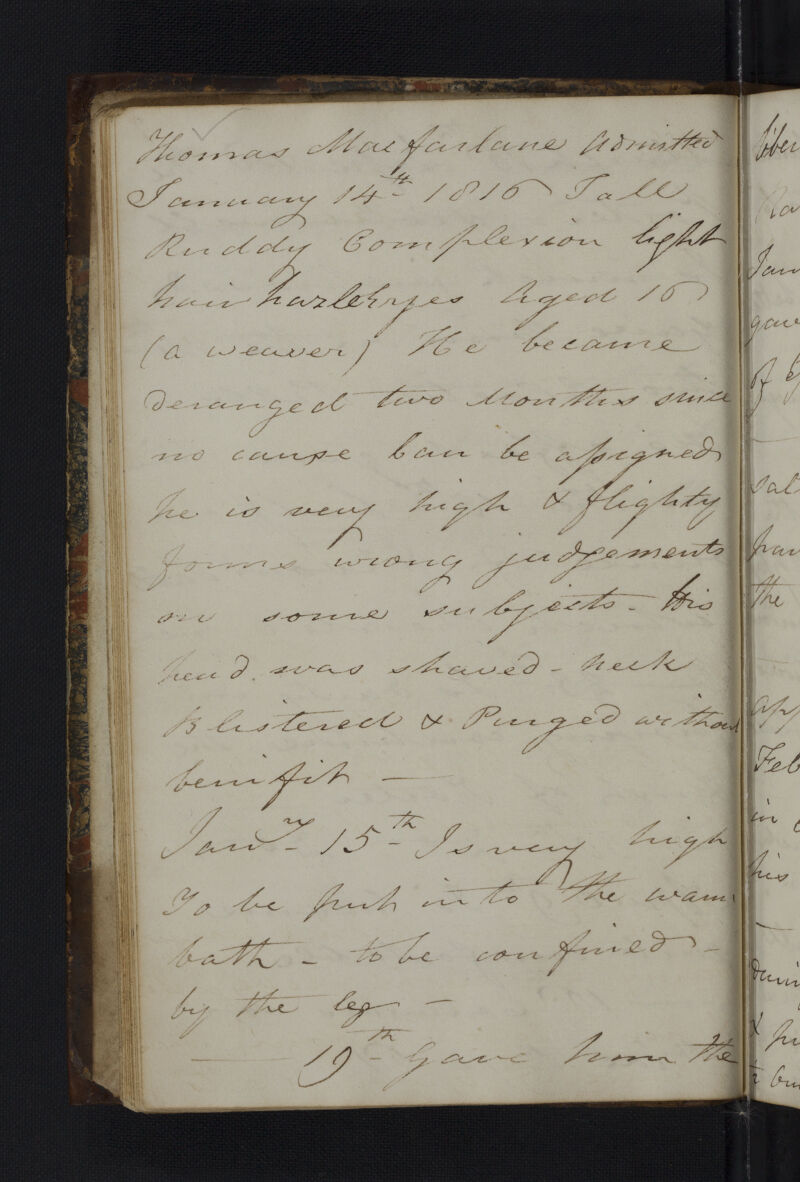 Thomas Macfarlane Admitted
January 14th 1816 Tall
Ruddy Complexion light
hair hazle Eyes Aged 16
(a weaver) He became
Deranged two Months since
no cause Can be assigned
he is very high & flighty
forms wrong judgements
on some subjects - His
head was shaved - neck
Blistered & Purged without
benifit —
Jany 15th Is very high
To be put into the warm
bath - to be confined -
by the leg -
— 19th Gave him the